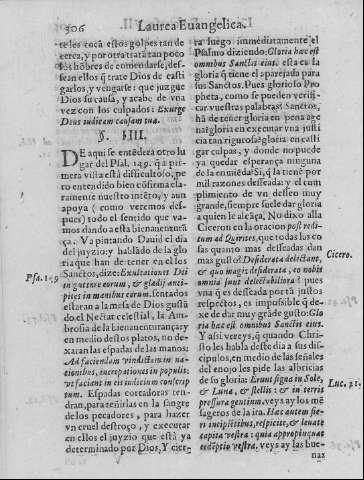 306 Laurea Euangelica.
te les toca estos golpes tan de
cerca, y por otra trata tan poco
sõt hõbres de comendarse, des-
sean ellos q̃ trate Dios de casti
garlos, y vengarse: que juzgue
Dios su causa, y acabe de vna
vez con los culpados: Exurge
Deus iudicam causam tua.
§. IIII.
DE aqui se entẽdera otro lu
gar del Psal. 149. q̃ a pri
mera vista està dificultoso, pe
ro entendido bien cõfirma cla-
ramente nuestro intẽto, y aun
apoya (como veremos des-
pues) todo el sentido que va-
mos dando a esta bienauentura
ça. Va pintando Dauid el dia
del juyzio; y hablãdo de la glo
ria que han de tener en el los
Santos, dize: Exultationes Dei
in gutture eorum, & gladij anci-
pites in manibus earum. sentados
estaran a la mesa de Dios gustã
do el Nectar celestial, la Am-
brosia de la bienauenturança; y
en medio destos platos, no de-
xaran las espadas de las manos:
Ad faciendam vindictam in na-
tionibus, increpationes in populis:
vt faciant in eis iudicium conscrip
tum. Espadas cortadoras ten-
dran, para teñirlas en la sangre
de los pecadores, para hazer
vn cruel destroço, y executar
en ellos el juyzio que està ya
determinado por Dios, Y cier-
Psa. 149
ra fuego immediatamente el
Psalmo diziendo: Gloria hæc est
omnibus Sanctis eius. esta es la
gloria q̃ tiene el aparejada para
sus Santos. Pues glorioso Pro
pheta, como se pueden verifi-
car vuestras palabras? Santos,
hã de tener gloria en pena age
na? gloria en executar vna justi
cia tan rigurosa? gloria en casti
gar culpas, y donde no puede
ya quedar esperança ninguna
de la emienda? Si, q̃ la tiene por
mil razones desseada; y el cum
plimiento de vn desseo muy
grande, siempre suele dar gloria
a quien le alcãça, No dixo alla
Ciceron en la oracion post redi-
tum ad Quirites, que todas las co
sas quanto mas desseadas dan
mas gusto? Desiderata delectant,
& quo magis desiderata, eo nobis
omnia sunt delectabiliora? pues
vna cosa desseada por tã justos
respectos, es impossible q̃ de-
xe de dar muy grãde gusto: Glo
ria hæc est omnibus Sanctis eius.
Y assi vereys, q̃ quando Chri-
sto les habla deste dia a sus dis-
cipulos, en medio de las señales
del enojo les pide las albricias
de su gloria: Erunt signa in Sole,
& Luna, & stellis: & in terris
pressura gentium. veys ay los mẽ
sageros de la ira. Hæc autem fie-
ri incipiẽtibus, respicite, & leuate
capita vestra: quia appropinquat
redẽptio vestra, veys ay las bue-
nas
Cicero.
Luc. 21.